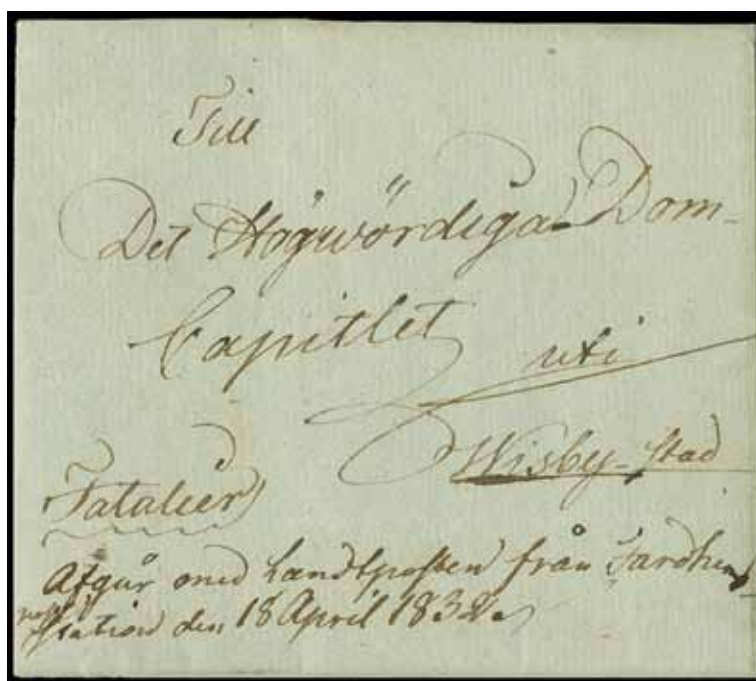 Till
Det Högwördiga Dom-
Capitlet
uti
Wisby-stad
Fatalier
Afgår med Landtposten från Fardhem
post Station den 18 April 1832.